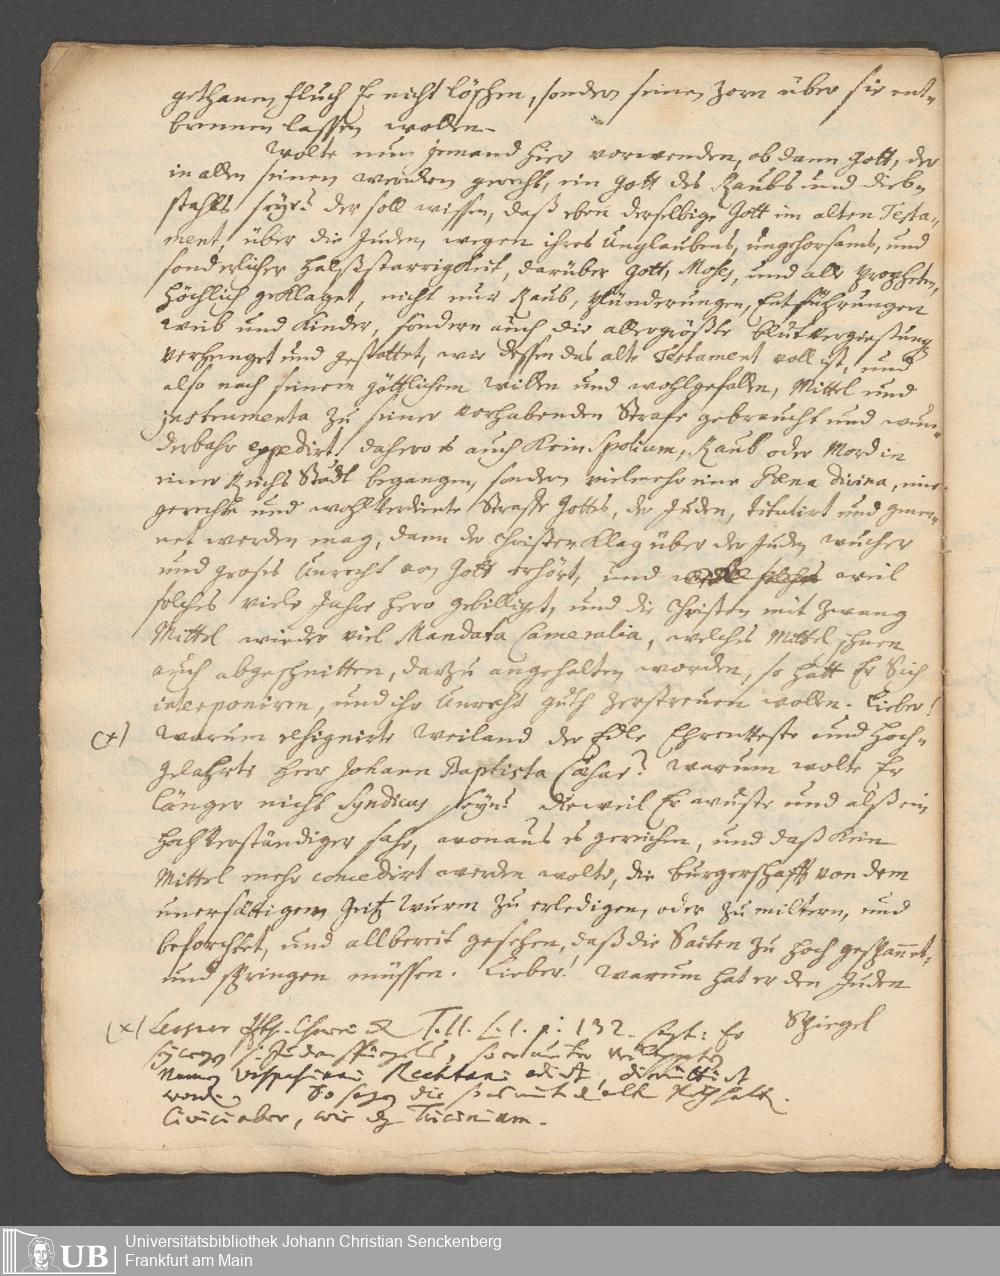 gethanen fluch Er nicht löschen, sondern seinen Zorn über sie ent-
brennen lassen wollen.
Wolte nun jemand hier vorwenden, ob dann Gott, der
in allen seinen wercken gerecht, ein Gott des Raubs und dieb-
stahls seye? der soll wissen, daß eben derselbige Gott im alten Testa-
ment, über die Juden, wegen ihres Unglaubens, ungehorsams, und
sonderlicher halßstarrigkeit, darüber Gott, Moses, und alle Propheten,
höchlich geklaget, nicht nur Raub, plünderungen, Entführungen
weib und Kinder, sondern auch die allergröste blutvergiesung
verhenget und gestattet, wie dessen das alte Testament voll ist, und
also nach seinem göttlichem willen und wohlgefallen, Mittel und
instrumenta zu seiner vorhabenden Strafe gebraucht und wun-
derbahr expedirt, dahero es auch kein Spolium, Raub oder Mord in
einer Reichs Stadt begangen, sondern vielmehr eine Pœna Divina, eine
gerechte und wohlverdiente Straffe Gottes, der Juden, titulirt und genen-
net werden mag, dann der Christen Klag über der Juden wucher
und groses Unrecht von Gott erhört, und weil
solches viele Jahre hero gebilliget, und die Christen mit Zwang
Mittel wieder viel Mandata Cameralia, welches Mittel ihnen
auch abgeschnitten, darzu angehalten worden, so hatt Er Sich
interponiren, und ihr Unrecht guth zerstreuen wollen. Lieber!
(x) warum resignirte weiland der Edle Ehrenveste und Hoch-
gelahrte Herr Johann Baptista Cæsar? warum wolte Er
länger nicht Syndicus seyn? dieweil Er wuste und alß ein
hochverständiger sahe, wonaus es gereichen, und daß kein
Mittel mehr concedirt werden wolte, die burgerschafft von dem
unersättigem Geitz Wurm zu erledigen, oder zu miltern, und
beforchtet, und allbereit gesehen, daß die Saiten zu hoch gespannet,
und springen müssen. Lieber! warum hat er den Juden
Spiegel
(x) Lersner Chron. T. II. L. 1. p. 132. sagt: Er
Juden spiegels, so unter
Vespasiani Rechtani edirt,
word. So sagen die
Civici aber, wie Ticinium.

Universitätsbibliothek Johann Christian Senckenberg
Frankfurt am Main
UB